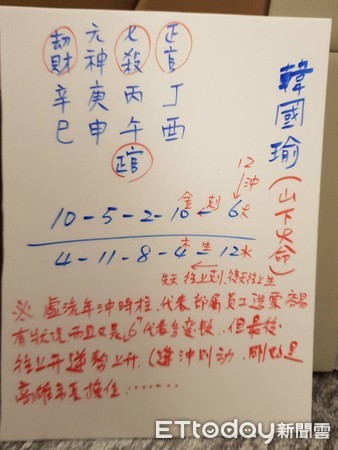 劫財 元神 七殺 正官
辛 庚 丙 丁
巳 申 午 酉
正官
韓國瑜(山下火命)
12
金剋 ↓沖
10-5-2-10-6火
木生
4-11-8-4-12水
先天往上剋,後天往上生
※ 處流年沖時柱,代表部屬員工 容易
有狀況而且又是"6"代表多變數,但最後
往上升逆勢上升,(逢沖則動,剛好是
高雄市長換位.......
ETtoday新聞雲